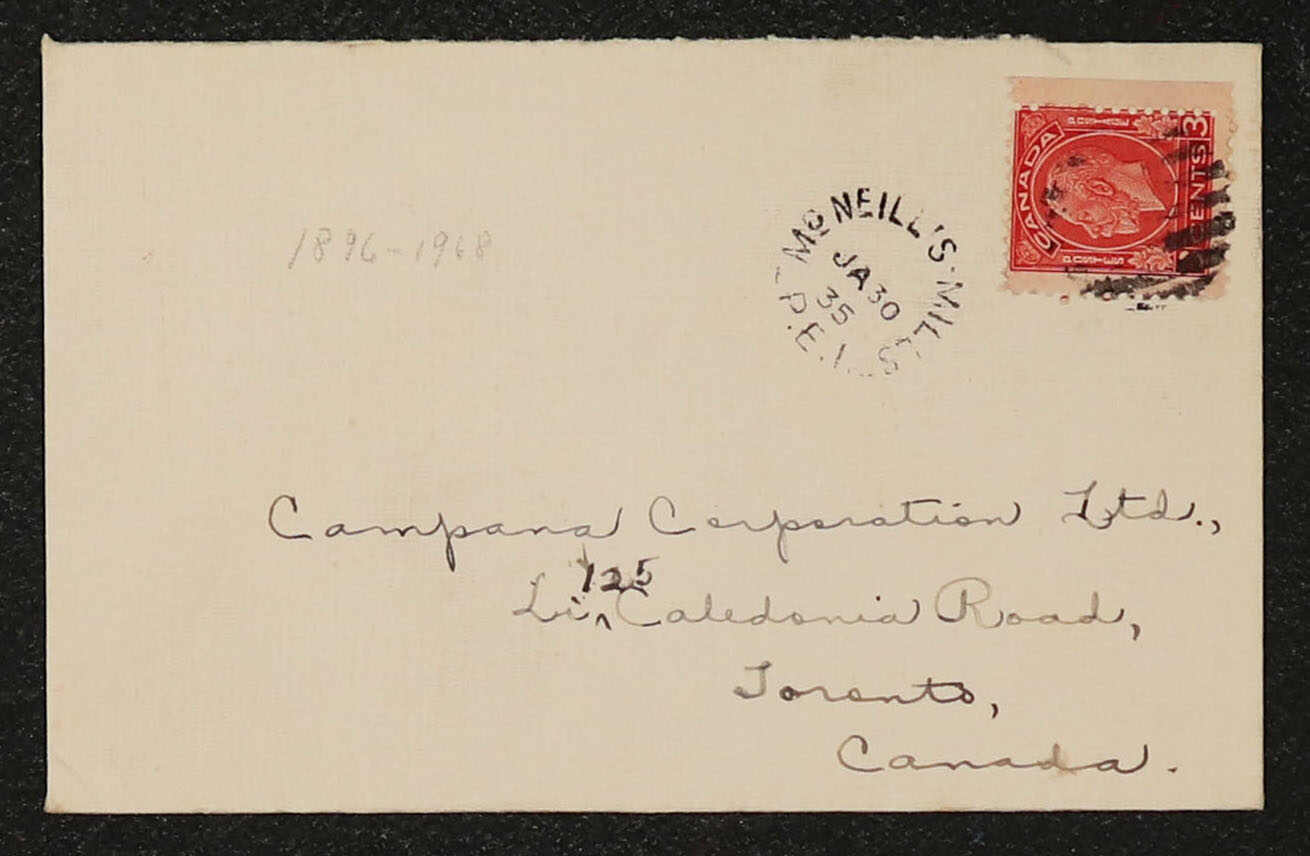 CANADA
POSTAGE
POSTES
3
CENTS
McNEILL'S MILLS
JA 30
35
P.E.I.
1896-1968
Campana Corporation Ltd.,
125
Caledonia Road,
Toronto,
Canada.